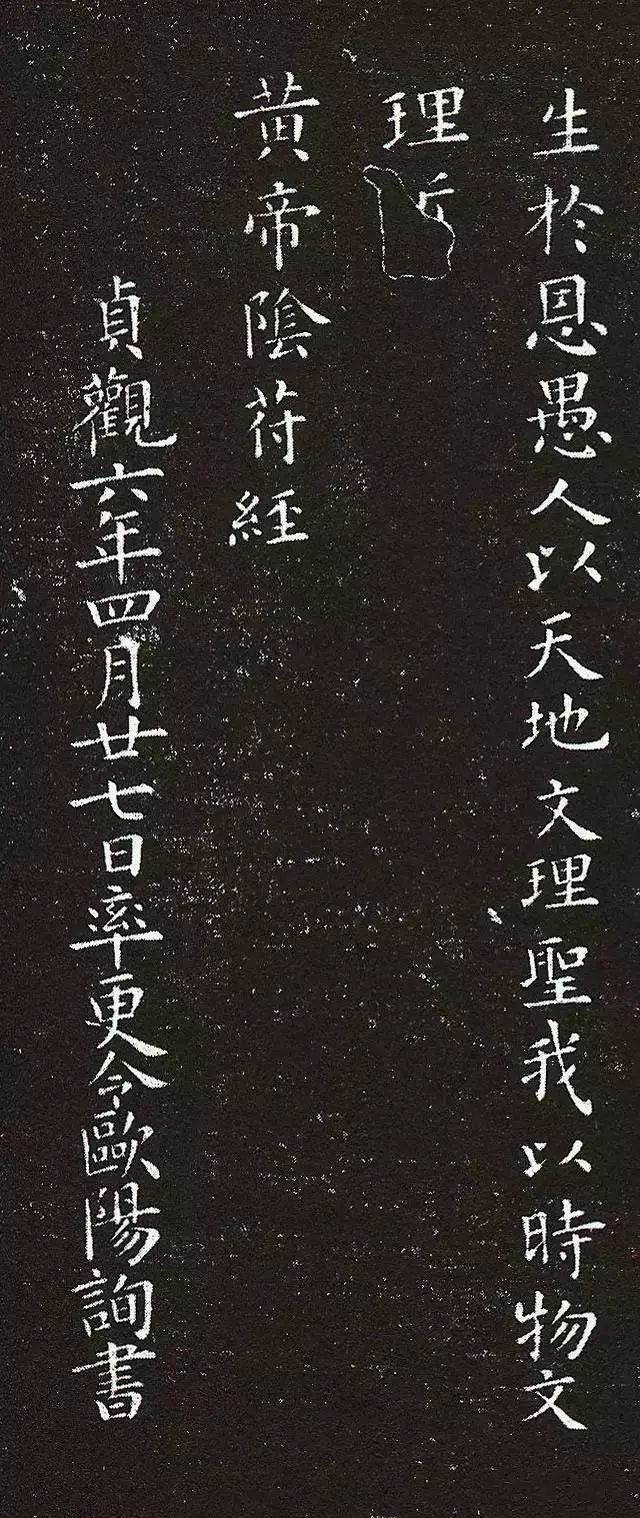 生於恩愚人以天地文理聖我以時物文
理
黄帝陰苻經
貞觀六年四月廿七日率更令歐陽詢書